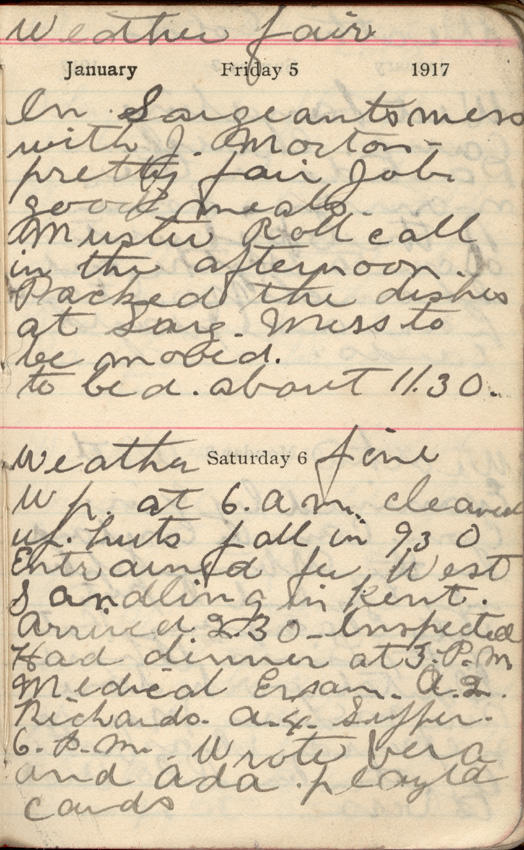 Weather fair
January Friday 5 1917
In Sargeants mess
with J. Morton -
pretty fair Job.
good meals.
Muster Roll call
in the afternoon.
Packed the dishes
at Sarg. Mess to
be moved.
to bed. about 11.30.
Weather Saturday 6 fine
Up. at 6. a.m. cleaned
up. huts fall in 930
Entrained for West
Sandling in Kent.
Arrived. 2.30 - Inspected
Had dinner at 3. P.M
Medical Exam. A.2.
Richards. a.4. Supper.
6. P.M. Wrote Vera
and Ada. played
cards